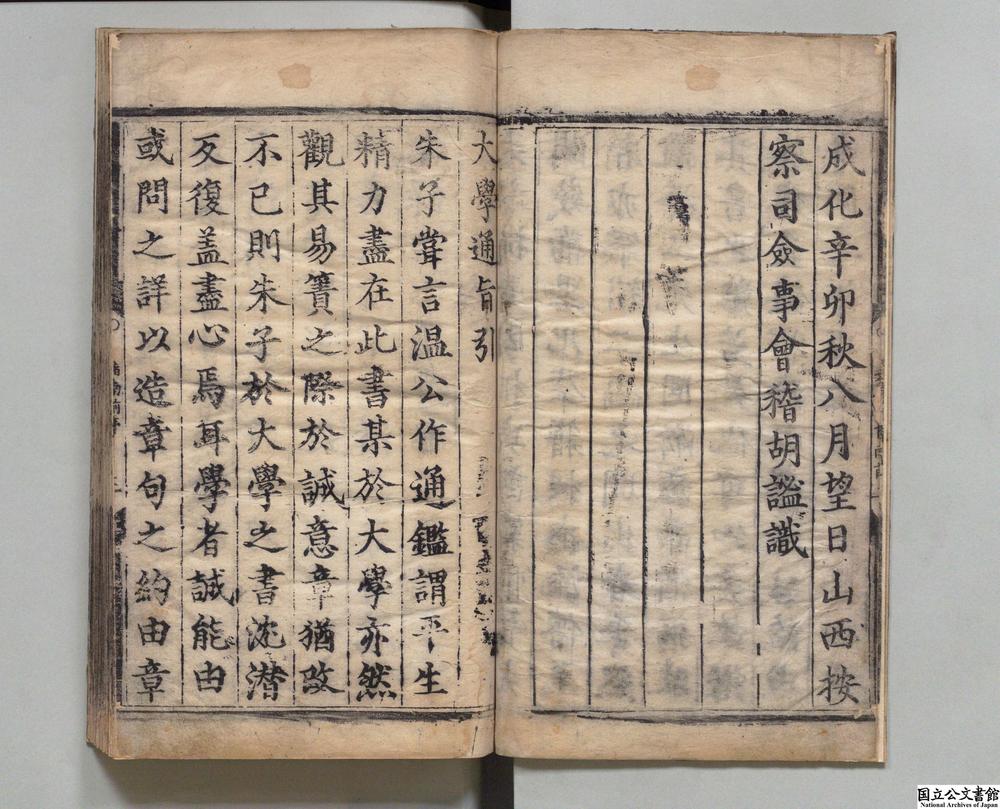 成化辛卯秋八月望日山西按
察司僉事會稽胡謐識
大學通旨引
朱子甞言温公作通鑑謂平生
精力盡在此書某於大學亦然
觀其易簀之際於誠意章猶改
不已則朱子於大學之書沈潜
反復盖盡心焉耳學者誠能由
或問之詳以造章句之約由章
国立公文書館
National Archives of Japan